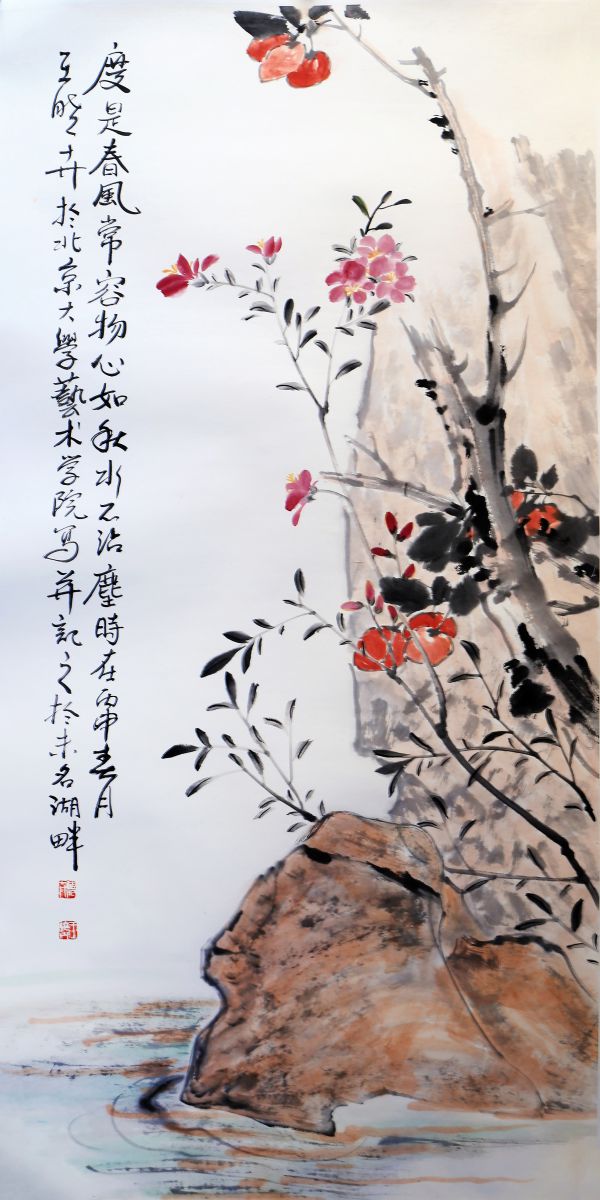 度是春風常容物心如秋水不沾塵時在丙申春月
王晓卉於北京大學藝术学院写并記之於未名湖畔